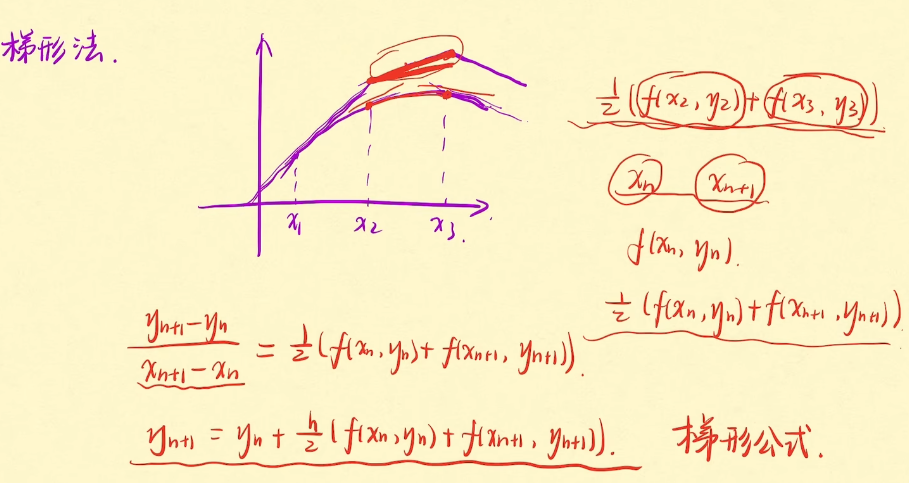 梯形法.
x₁ x₂ x₃.
½(f(x₂, y₂)+f(x₃, y₃))
xₙ xₙ₊₁
f(xₙ, yₙ).
½(f(xₙ, yₙ)+f(xₙ₊₁, yₙ₊₁))
(yₙ₊₁-yₙ)/(xₙ₊₁-xₙ) = ½(f(xₙ, yₙ)+f(xₙ₊₁, yₙ₊₁)).
yₙ₊₁ = yₙ + h/2(f(xₙ, yₙ)+f(xₙ₊₁, yₙ₊₁)). 梯形公式.